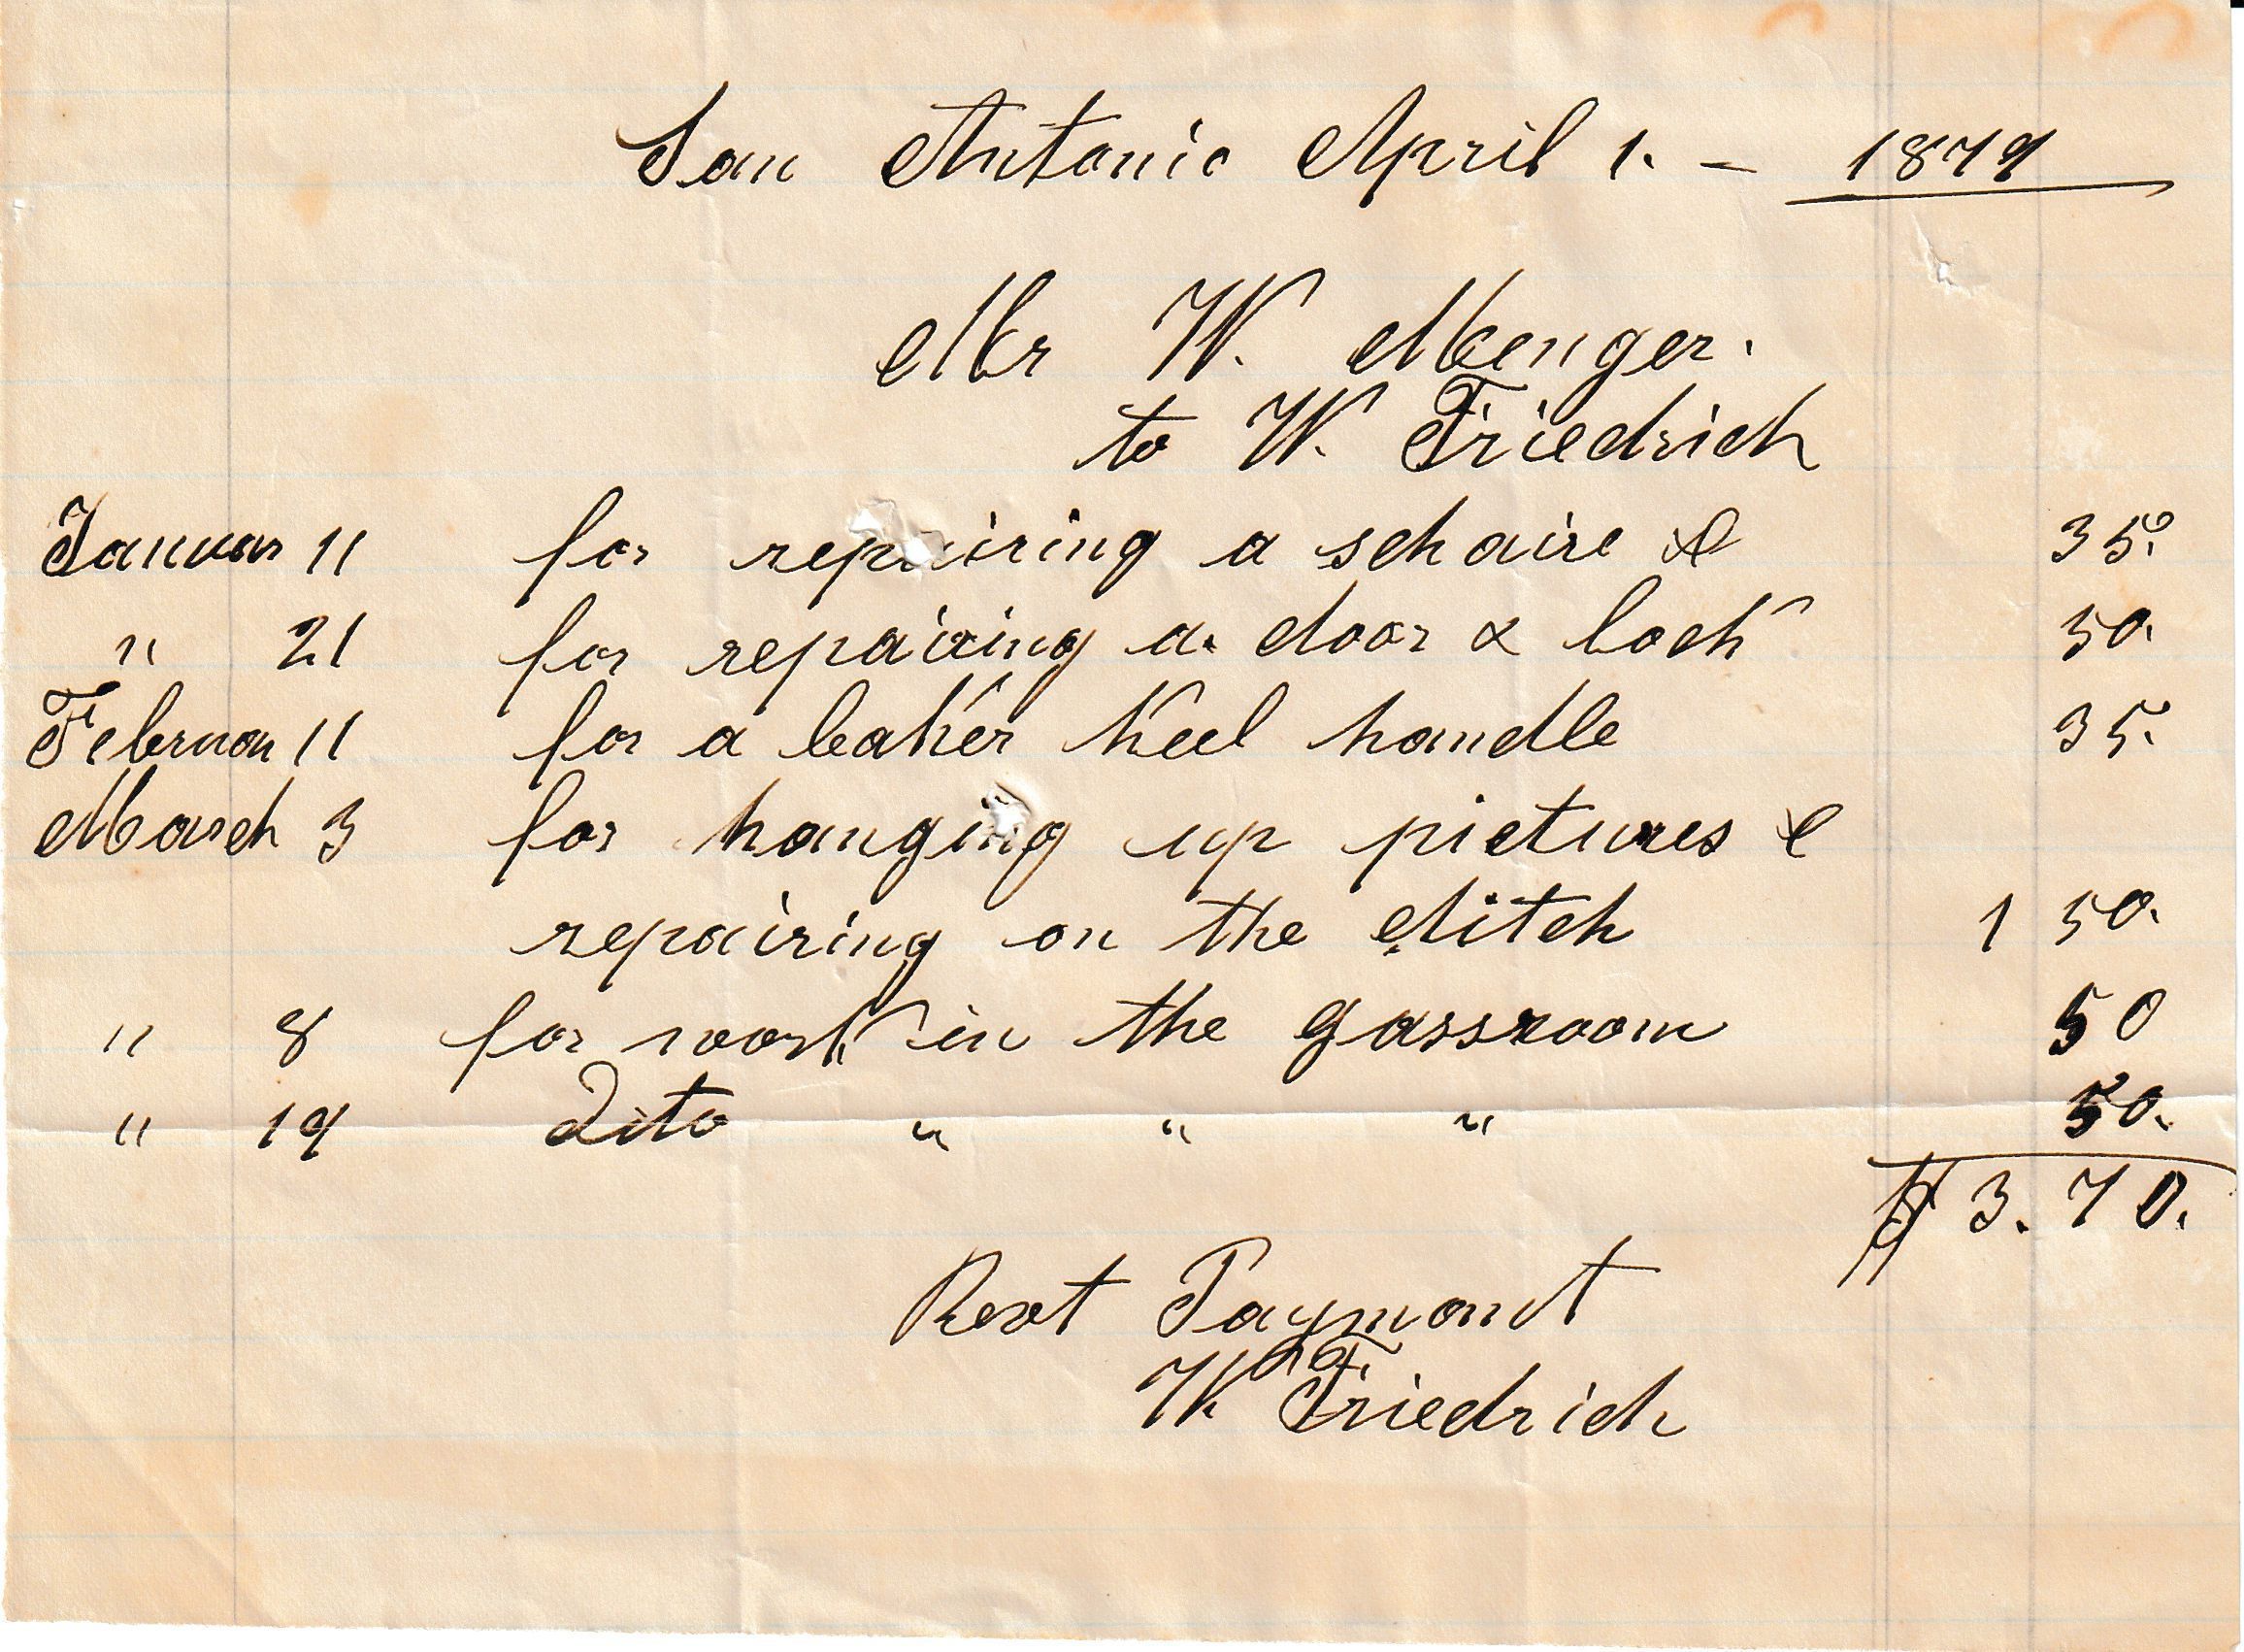 San Antonio April 1. – 1879
Mr W. Menger.
to W. Friedrich
Januar 11 for repairing a schaire & 35.
" 21 for repairing a door & lock 50.
Februar 11 for a baker keel handle 35.
March 3 for hanging up pictures &
repairing on the ditch 1 50.
" 8 for work in the gassroom 50
" 19 Dito " " " 50.
$ 3.70.
Payment
W Friedrich